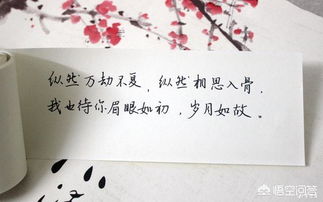 纵然万劫不复，纵然相思入骨，
我也待你眉眼如初，岁月如故。
悟空问答